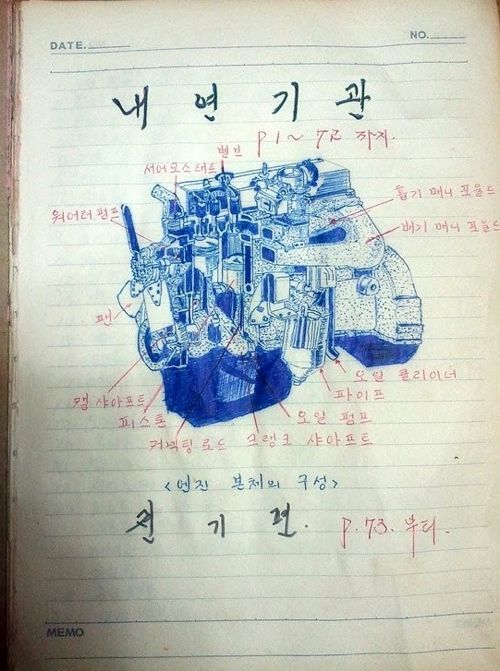 DATE.
NO.
내 연 기 관
P1~72 까지.
밸브
서어모스태트
흡기 매니포울드
워어터 펌프
배기 매니포울드
팬
오일 클리이너
캠 샤아프트
파이프
피스톤
오일 펌프
커넥팅 로드
크랭크 샤아프트
<엔진 본체의 구성>
전 기 편.
P.73. 부터.
MEMO